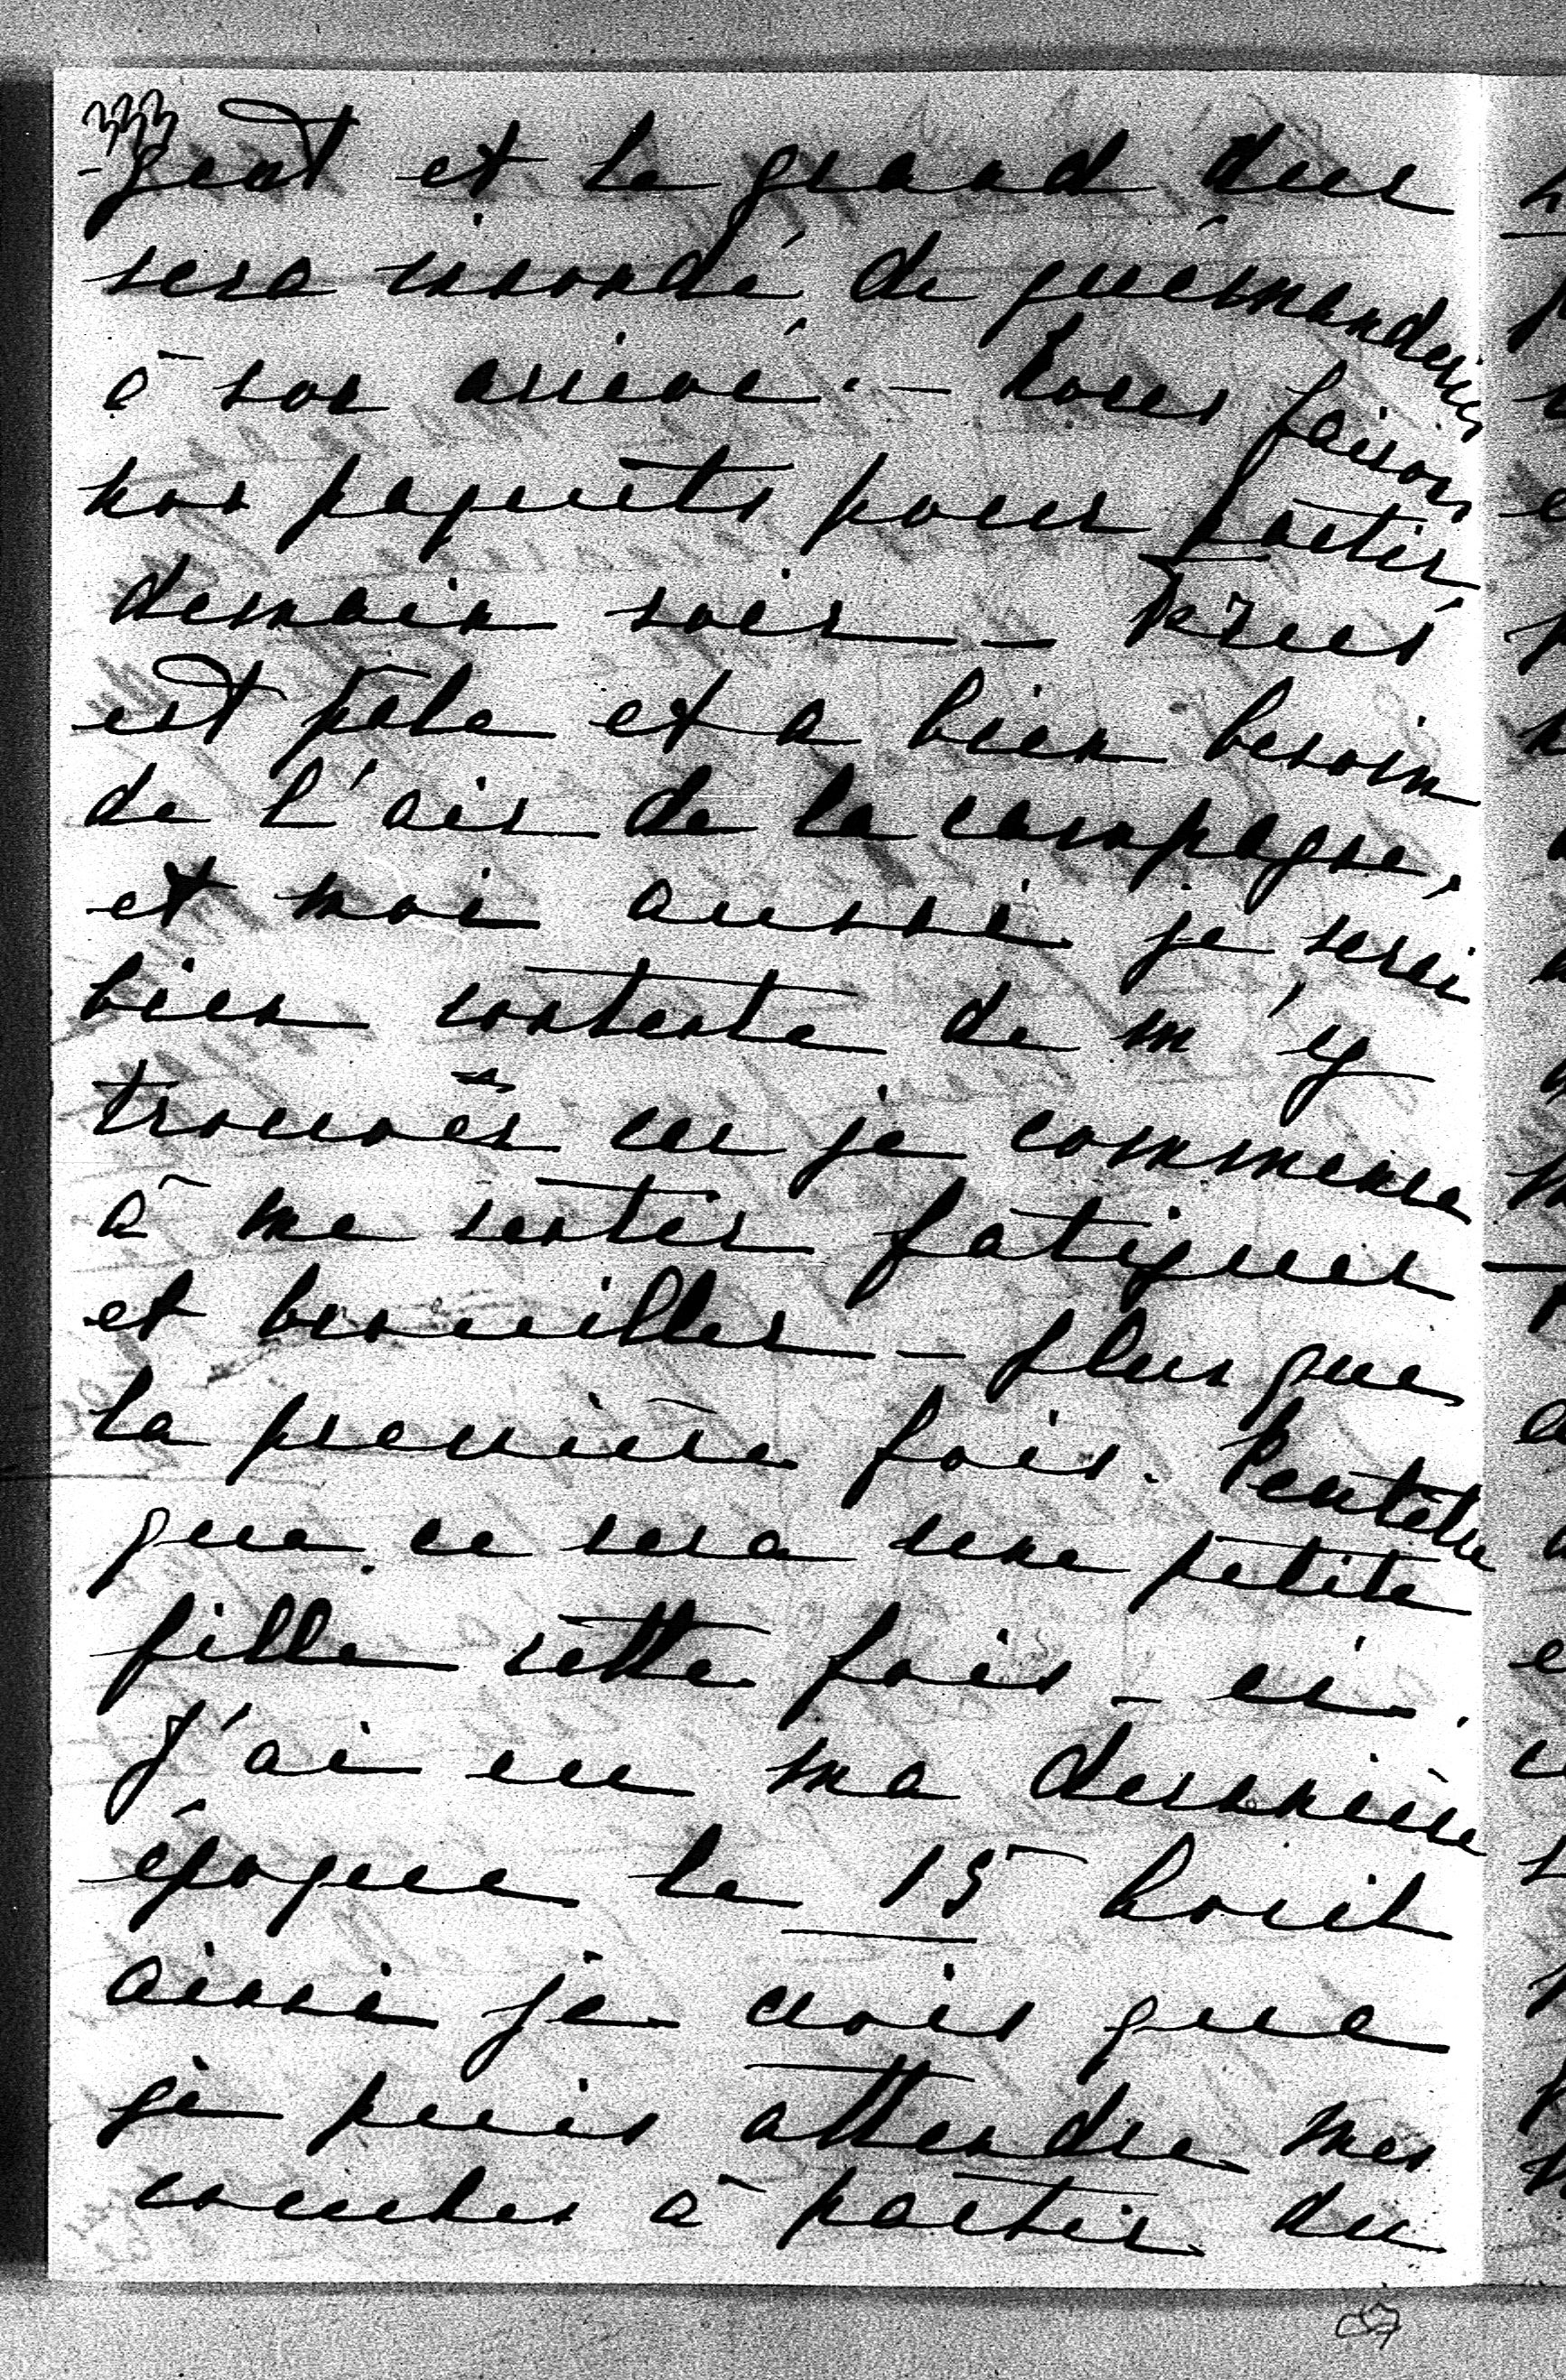 333
-gent et le grand duc
sera inondé de quémanderies
à son arrivé. — Nous faisons
nos paquets pour partir
demain soir —
est pâle et a bien besoin
de l'air de la campagne,
et moi aussi je serai
bien contente de m'y
trouver car je commence
à me sentir fatiguer
et brouiller — plus que
la première fois. Peutêtre
que ce sera une petite
fille cette fois-ci.
J'ai eu ma dernière
époque le 15 Avril
ainsi je crois que
je puis attendre mes
couches à partir du